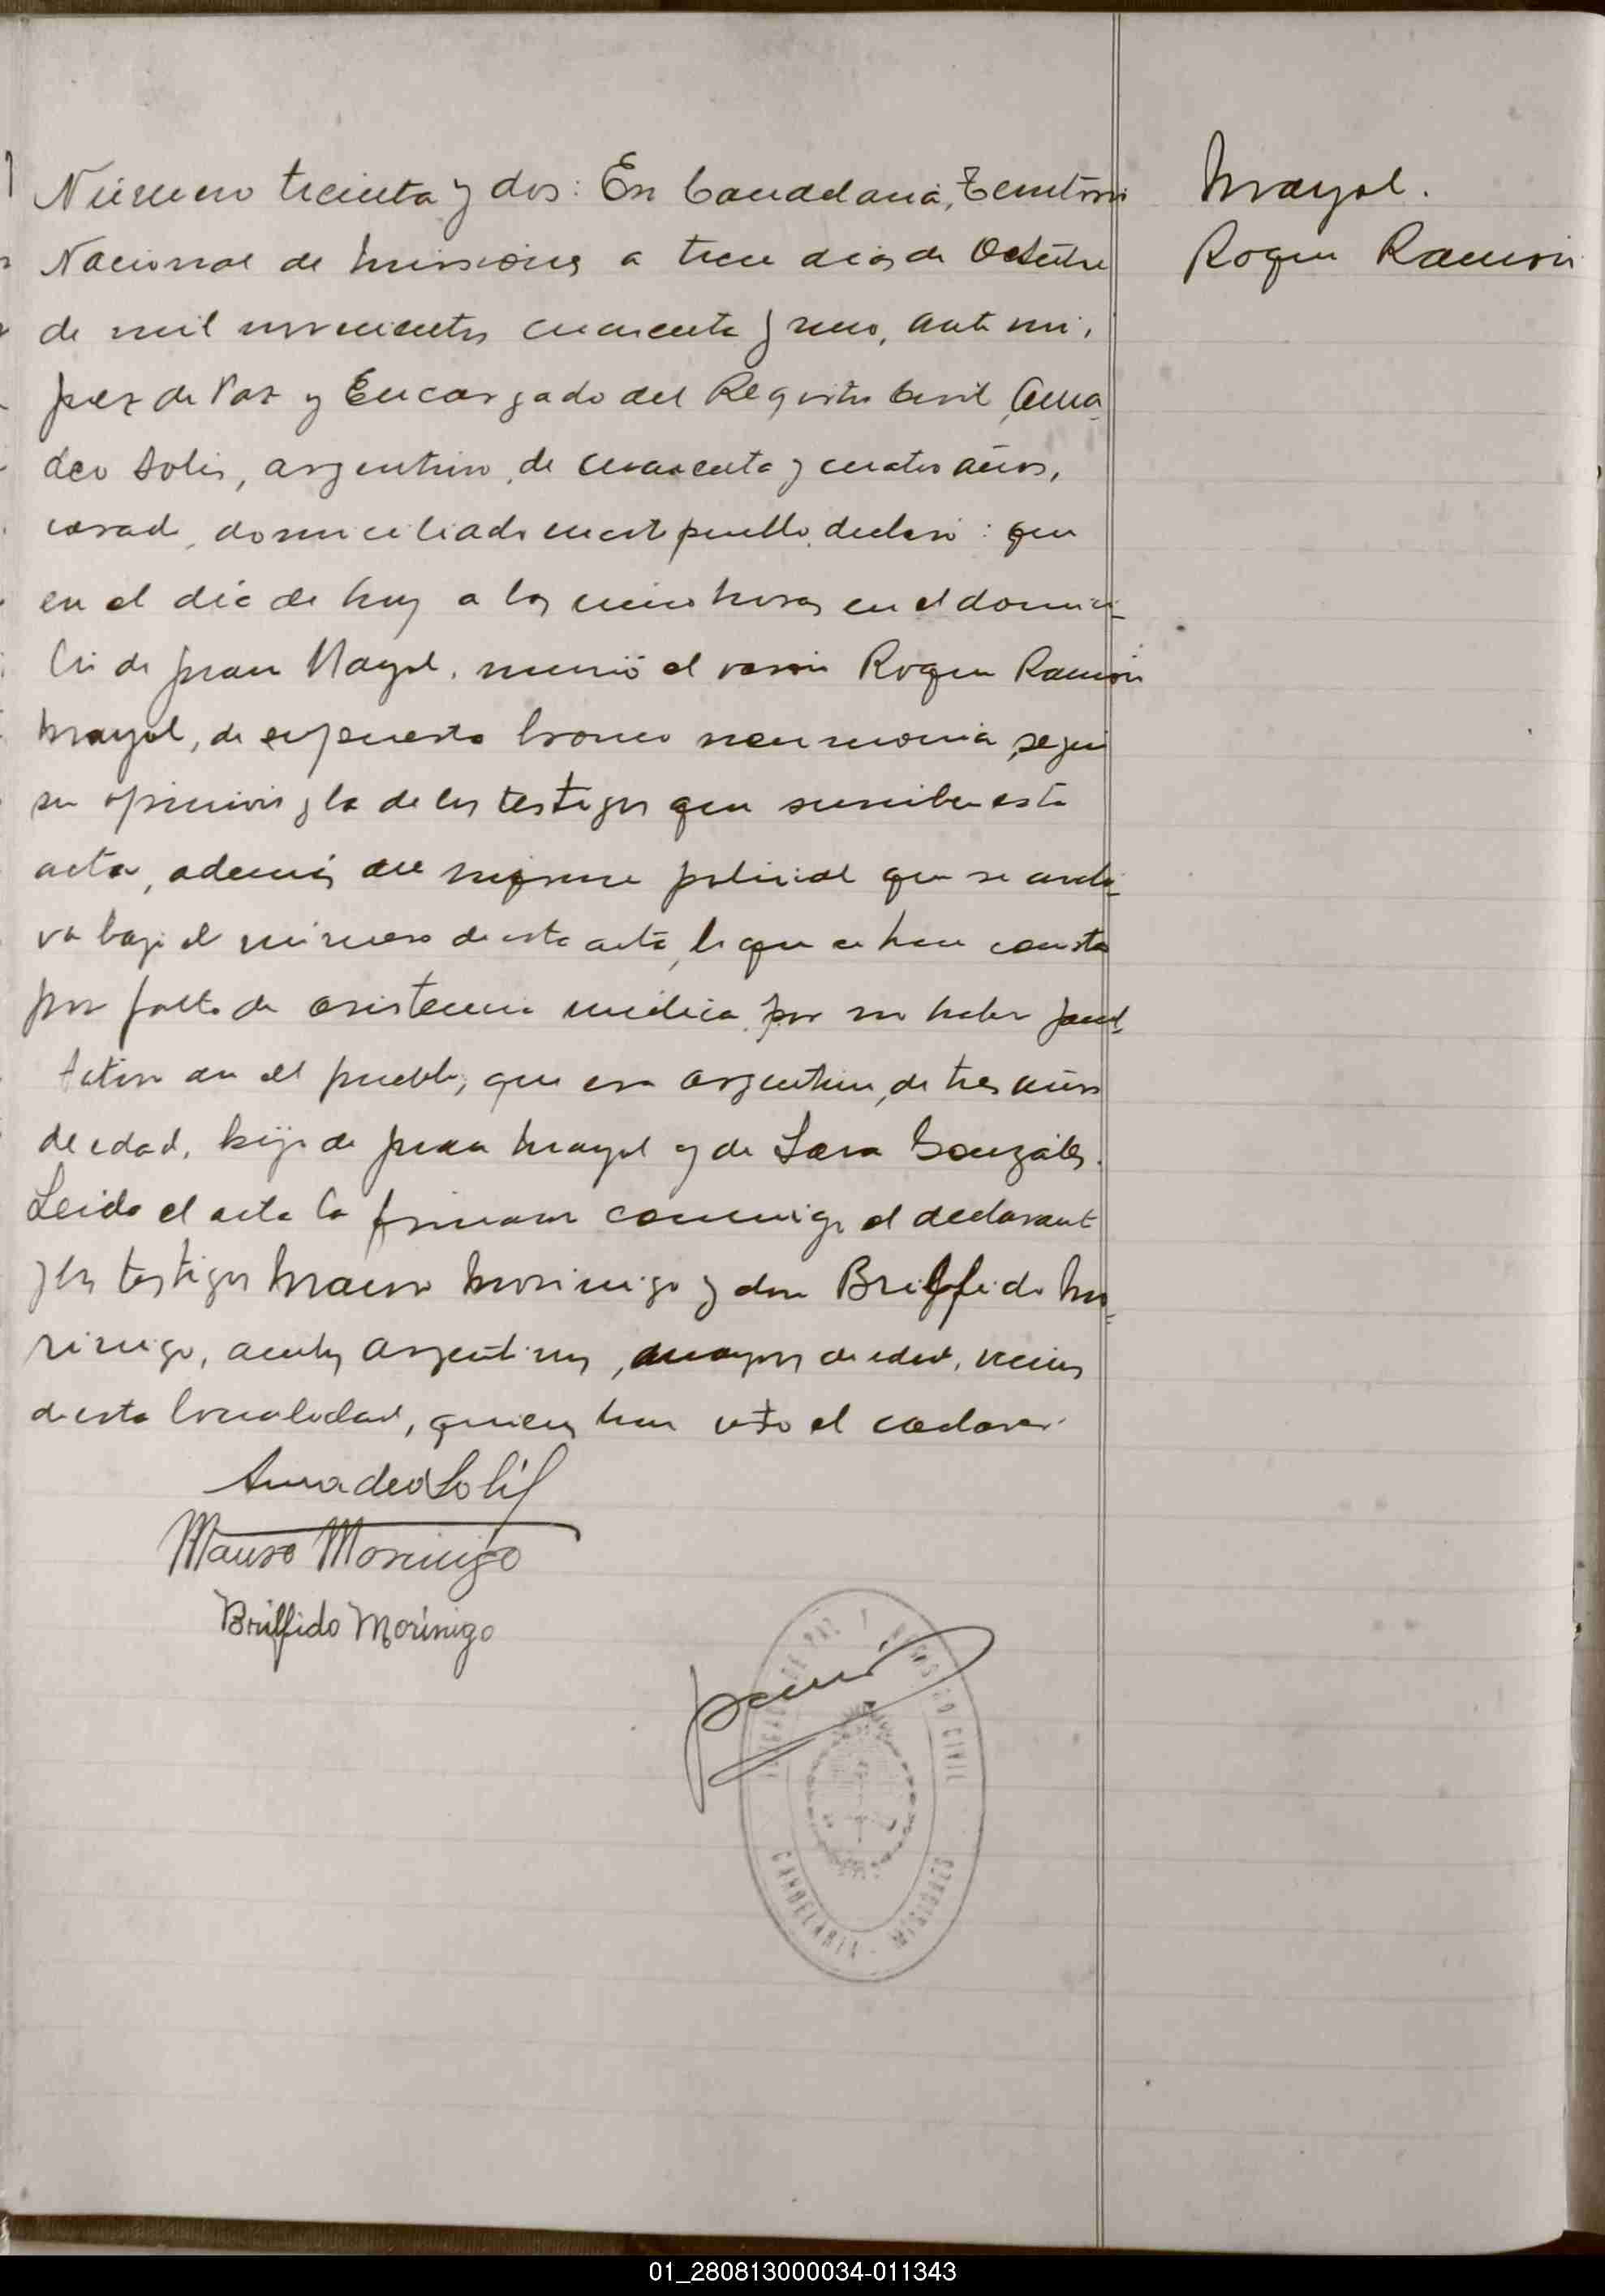 Número treinta y dos: En Candelaria, Territorio
Mayol.
Nacional de Misiones a trece dias de Octubre
Roque Ramón
de mil novecientos cuarenta y uno, ante mi,
Juez de Paz y Encargado del Registro Civil, Ama-
deo Solis, argentino, de cuarenta y cuatro años,
casado, domiciliado en este pueblo, declaró: que
en el día de hoy a las horas en el domici-
lio de Juan Mayol, murió el varón Roque Ramón
Mayol, de supuesta bronco neumonia, según
su opinión y la de los testigos que suscriben esta
acta, además del informe policial que se archi-
va bajo el número de esta acta, lo que se hace constar
por falta de asistencia médica por no haber facul-
tativo en el pueblo, que era argentino, de tres años
de edad, hijo de Juan Mayol y de Sara Gonzáles.
Leida el acta la firmaron conmigo el declarante
y los testigos Mauro Morinigo y don Brilfido Mo-
rinigo, ambos argentinos, mayores de edad, vecinos
de esta localidad, quienes han visto el cadaver.
Amadeo Solis
Mauro Morinigo
Brilfido Morinigo
JUZGADO DE PAZ Y REGISTRO CIVIL
CANDELARIA - MISIONES
01_280813000034-011343